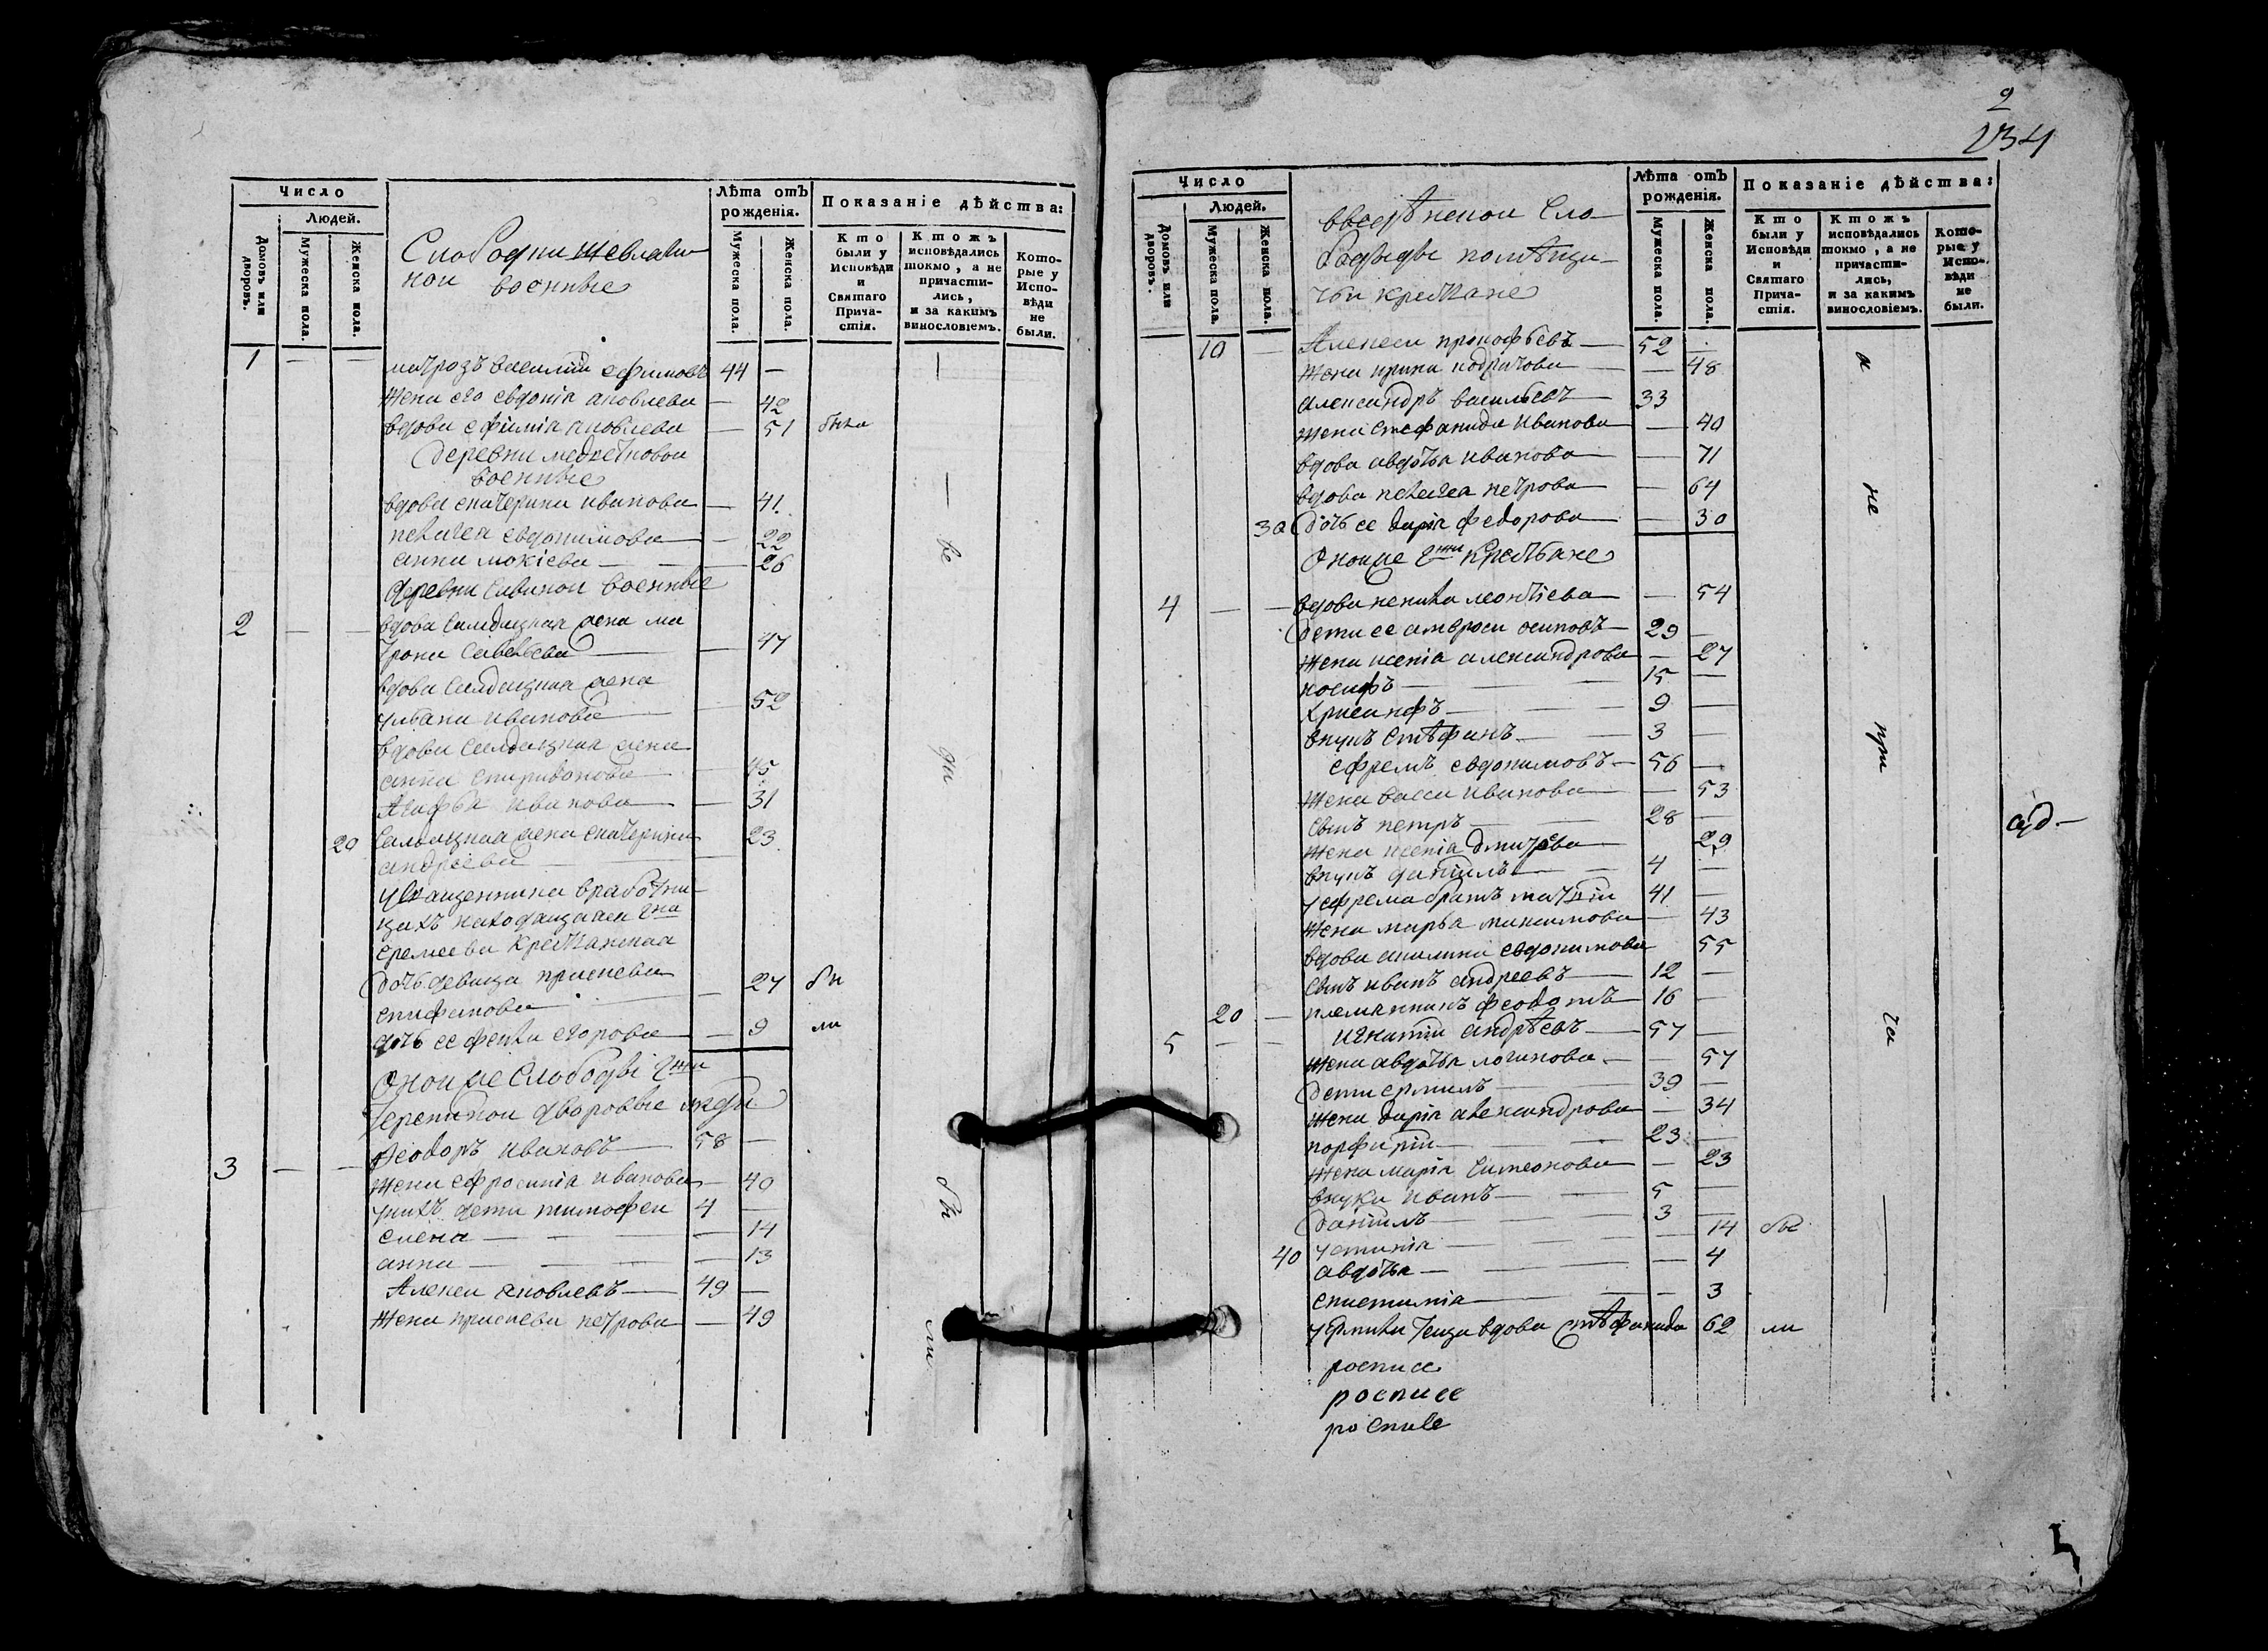 Число
Людей.
Домовъ или дворовъ.
Мужеска пола.
Женска пола.
военные
Лѣта отъ рожденія.
Мужеска пола.
Женска пола.
Показаніе дѣйства:
Кто были у Исповѣди и Святаго Причастія.
Ктожъ исповѣдались токмо, а не причастились, и за какимъ винословіемъ.
Которые у Исповѣди не были.
1 — — матрозъ василий ефимовъ 44 —
жена его евдокіа яковлева — 42
вдова ефиміа яковлева — 51
деревни
военные
вдова екатерина иванова — 41
пелагея евдокимова — 22
анна мокіева — 26
деревни савиной военные
2 — — вдова салдацкая жена ма
трона савельева — 47
вдова салдацкая жена
улиана иванова — 52
вдова салдацкая жена
анна спиридонова — 45
Агафья иванова — 31
20 салдацкая жена екатерина 23
андреева
у священника в работни
цахъ находящаяся гжи
еремеева крестьянская
дочь девица прасковья 27 бы
епифанова
дочь ее фекла егорова — 9 ли
Оной же слободы гжи
дворовые люди
3 — — Феодоръ ивановъ 58 —
жена ефросиніа иванова — 40
у нихъ дети тимофей 4 —
елена — 14
анна — 13
Алексей яковлевъ 49 —
жена прасковья петрова — 49
ве
ди
бы
ли
2
234
Число
Людей.
Домовъ или дворовъ.
Мужеска пола.
Женска пола.
сло
помѣщи
чьи крестьяне
Лѣта отъ рожденія.
Мужеска пола.
Женска пола.
Показаніе дѣйства:
Кто были у Исповѣди и Святаго Причастія.
Ктожъ исповѣдались токмо, а не причастились, и за какимъ винословіемъ.
Которые у Исповѣди не были.
10 — Алексей прокофьевъ 52 —
жена ирина — 48
александръ васильевъ 33
жена стефанида иванова — 40
вдова авдотья иванова — 71
вдова пелагея петрова — 64
30 дочь ее дарія федорова — 30
Оной же гжи крестьяне
4 — — вдова леонтіева — 54
дети ее амвросий осиповъ 29 —
жена ксеніа александрова — 27
иосифъ 15 —
хрисанфъ 9 —
внукъ стѣфанъ 3 —
ефремъ евдокимовъ 56 —
жена васса иванова — 53
сынъ петръ 28 —
жена ксеніа дмитрева 29
внукъ даніилъ 4 —
у ефрема братъ матвій 41 —
жена марья максимова — 43
вдова акилина евдокимова 55
сынъ иванъ андреевъ 12 —
20 — племянникъ феодотъ 16 —
5 — — игнатій андрѣевъ 57 —
жена авдотья логинова — 57
дети ермилъ 39 —
жена дарія александрова — 34
порфирій 23 —
жена марія симеонова — 23
внуки иванъ 5 —
даніилъ 3 —
40 устиніа — 14 бы
авдотья — 4
епистиміа — 3
у ермила теща вдова стѣфанида 62 ли
росписе
росписе
росписе
а
не
при
ча